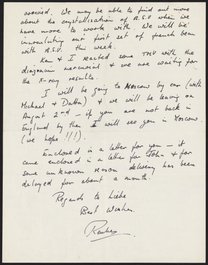 arrived. We may be able to find out more
about the crystallisation of R.S.O when we
have more to work with. We will be
innoculating our first set of french bean
with R.S.O. this week.
Ken & I reached some TMV with the
diazonium mercurial & we are waiting for
the X-ray results.
I will be going to Moscow by car (with
Michael & Dalton) & we will be leaving on
August 2nd — if you are not back in
England by then I will see you in Moscow.
(we hope !!!).
Enclosed is a letter for you — it
came enclosed in a letter for John & for
some unknown reason delivery has been
delayed for about a month!
Regards to Liebe
Best Wishes.